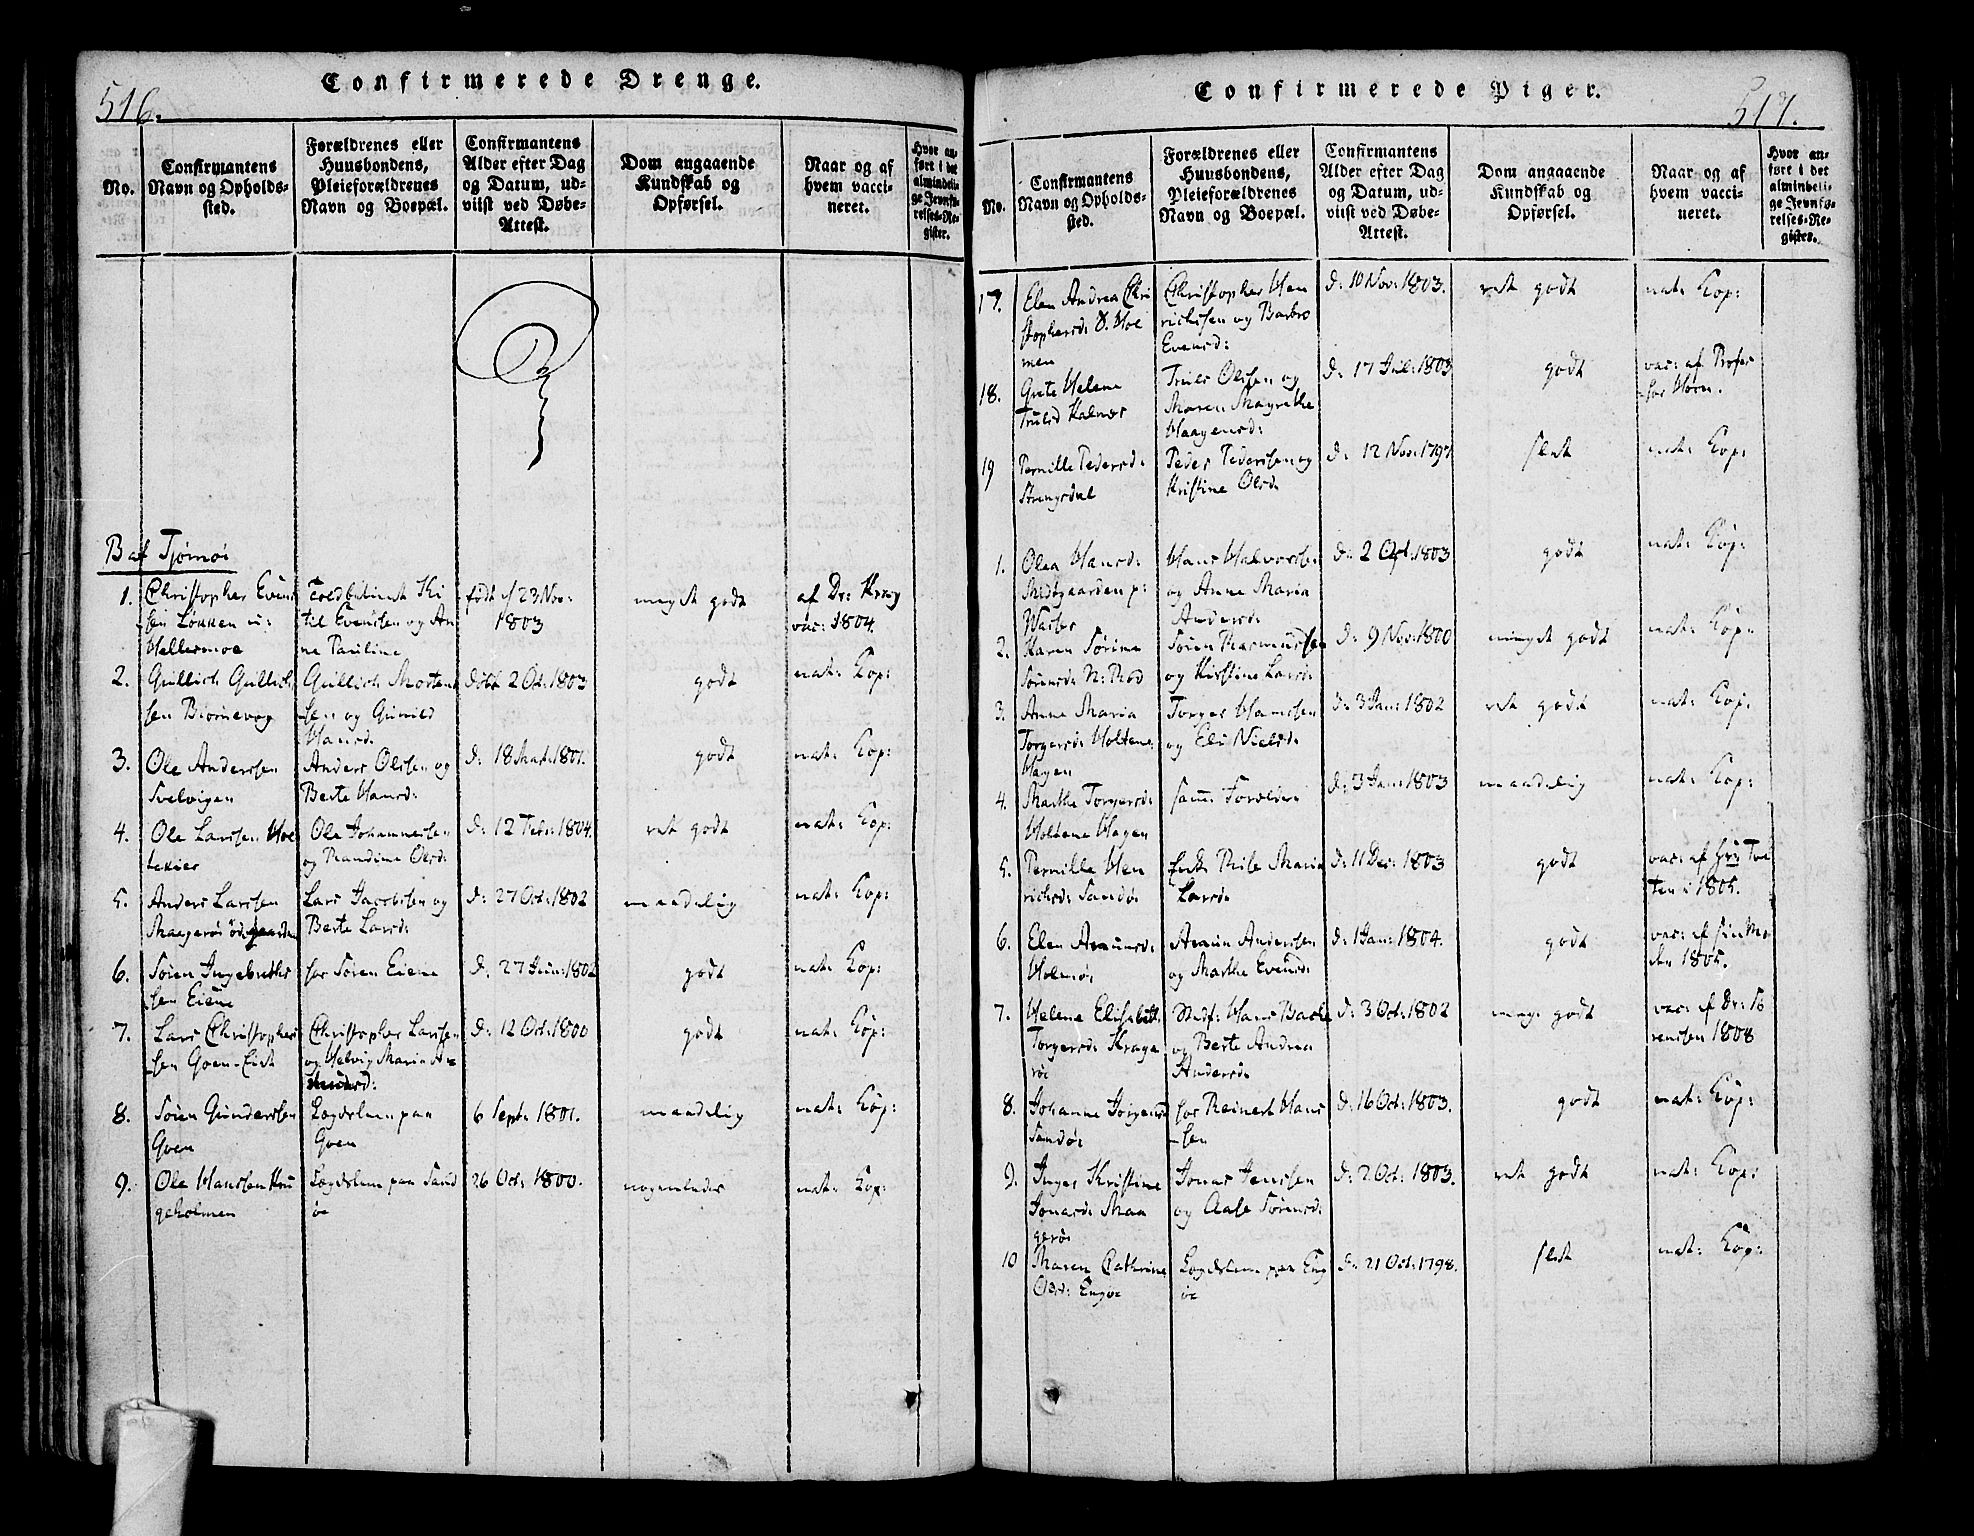 516.
Confirmerede Drenge.
No.
Confirmantens
Navn og Opholds-
sted.
Forældrenes eller
Huusbondens,
Pleieforældrenes
Navn og Boepæl.
Confirmantens
Alder efter Dag
og Datum, ud-
viist ved Døbe-
Attest.
Dom angaaende
Kundskab og
Opførsel.
Naar og af
hvem vacci-
neret.
Hvor an-
ført i det
almindeli-
ge Jevnfø-
relses-Re-
gister.
B af Tjømøe
1.
Christopher Evens
sen Løkken u:
Hellermoe
Toldbetient Ki
til Evensen og An
ne Pauline
født d 23 Nov:
1803
meget godt
af Dr: Krag
vac: 1804.
2.
Gullich Gullich
sen Biørnevog
Gullich Mortens
sen og Gunild
Hansd:
døbt 2 Oct: 1803
godt
nat: Kop:
3.
Ole Anderssen
Svelvigen
Anders Olssen og
Berte Hansd:
d: 18 Mart: 1801.
godt
nat: Kop:
4.
Ole Larssen Hol
tekier
Ole Johannessen
og Randine Olsd:
d: 12 Febr: 1804.
ret godt
nat: Kop:
5.
Anders Larssen
Maagerøe Ødegaarden
Lars Jacobssen og
Berte Larsd:
d: 27 Oct: 1802
maadelig
nat: Kop:
6.
Søren Ingebreths
sen Eiene
for Søren Eiene
d: 27 Jun: 1802
godt
nat: Kop:
7.
Lars Christophers
sen Goen
Christopher Larssen
og Helvig Maria
d: 12 Oct: 1800
godt
nat: Kop:
8.
Søren Gunderssen
Goen
Lægdslem paa
Goen
6 Sept: 1801.
maadelig
nat: Kop:
9.
Ole Hanssen Kru
geholmen
Lægdslem paa Sand
øe
26 Oct: 1800.
nogenledes
nat: Kop:
517.
Confirmerede Piger.
No.
Confirmantens
Navn og Opholds-
sted.
Forældrenes eller
Huusbondens,
Pleieforældrenes
Navn og Boepæl.
Confirmantens
Alder efter Dag
og Datum, ud-
viist ved Døbe-
Attest.
Dom angaaende
Kundskab og
Opførsel.
Naar og af
hvem vacci-
neret.
Hvor an-
ført i det
almindeli-
ge Jevnfø-
relses-Re-
gister.
17.
Elen Andrea Chri
stophersd: V. Hol
men
Christopher Hen
richssen og Barbro
Evensd:
d: 10 Nov: 1803.
ret godt
nat: Kop:
18.
Grete Helene
Trulsd Kalnes
Truls Olssen og
Maren Magrethe
Haagensd:
d: 17 Jul: 1803
godt
vac: af Profes
sor Horn.
19
Pernille Pedersd:
Strengsdal
Peder Pederssen og
Kristine Olsd:
d: 12 Nov: 1797
slet
nat: Kop:
1.
Olea Hansd:
Midtgaarden p:
Hans Halvorssen
og Anne Maria
Andersd:
d: 2 Oct: 1803
godt
nat: Kop:
2.
Karen Sørine
Sørensd: N: Rød
Søren Rasmussen
og Kirstine Larsd:
d: 9 Nov: 1800
meget godt
nat: Kop:
3.
Anne Maria
Torgersd: Holtene
Hagen
Torger Hanssen
og Eli Nielsd:
d: 3 Jan: 1802
ret godt
nat: Kop:
4.
Marthe Torgersd:
Holtene Hagen
samme Forældre
d: 3 Jan: 1803
maadelig
nat: Kop:
5.
Pernille Hen
richsd: Sandø:
Maria
Larsd:
d: 11 Dec: 1803
godt
vac: af
ten: 1805.
6.
Elen Araunsd:
Holmøe
Araun Anderssen
og Marthe Evensd:
d: 1 Jan: 1804.
godt
vac: af
1805.
7.
Helene Elisabeth
Torgersd: Krage
røe
Hans Bache
og Berte Andrea
Andersd:
d: 3 Oct: 1802
meg: godt
vac: af Dr: So
renssen 1808
8.
Johanne Jørgensd
Sandø:
for Reinert Hans
sen
d: 16 Oct: 1803.
godt
nat: Kop:
9.
Inger Kristine
Jonasd: Maa
gerø:
Jonas Jenssen
og Aase Sørensd:
d: 2 Oct: 1803.
ret godt
nat: Kop:
10
Maren Cathrine
Olsd: Engøe
Lægdslem paa Eng
øe
d: 21 Oct: 1798.
slet
nat: Kop: